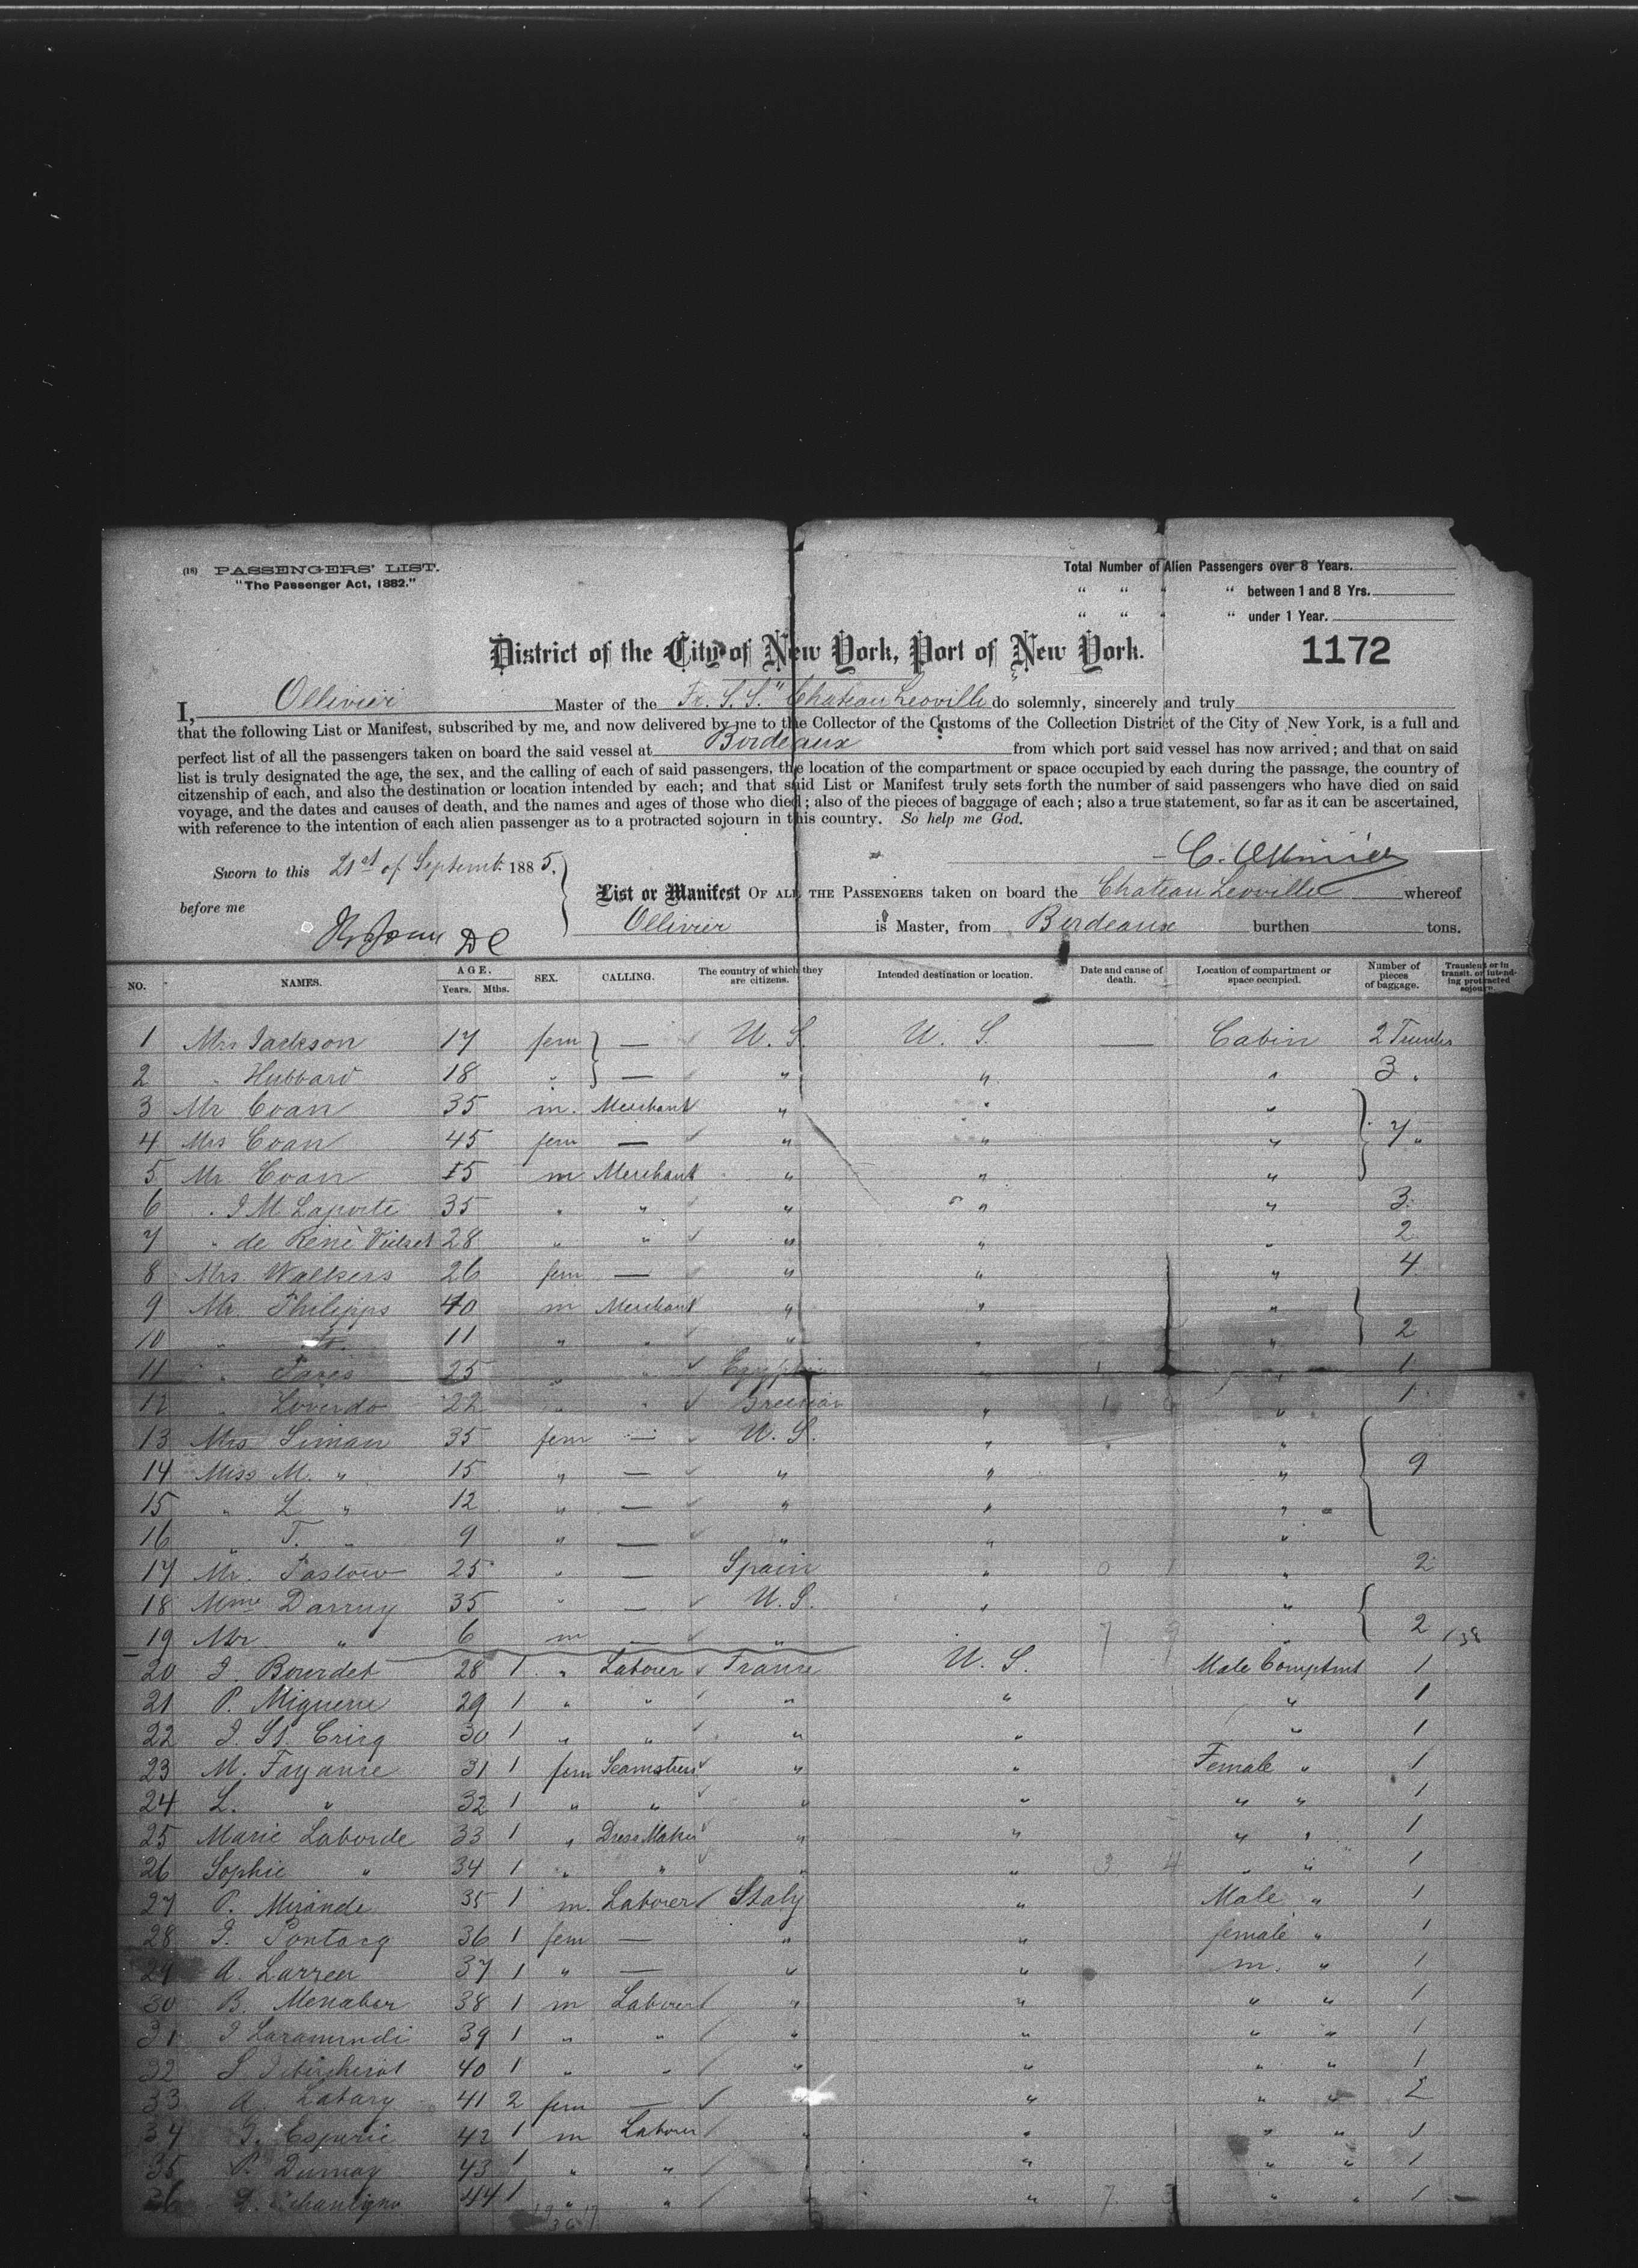 (18) PASSENGERS' LIST.
"The Passenger Act, 1882."
Total Number of Alien Passengers over 8 Years.
" " " " between 1 and 8 Yrs.
" " " " under 1 Year.
District of the City of New York, Port of New York.
1172
I, Ollivier Master of the Fr. S.S. "Chateau Leoville do solemnly, sincerely and truly
that the following List or Manifest, subscribed by me, and now delivered by me to the Collector of the Customs of the Collection District of the City of New York, is a full and
perfect list of all the passengers taken on board the said vessel at Bordeaux from which port said vessel has now arrived; and that on said
list is truly designated the age, the sex, and the calling of each of said passengers, the location of the compartment or space occupied by each during the passage, the country of
citzenship of each, and also the destination or location intended by each; and that said List or Manifest truly sets forth the number of said passengers who have died on said
voyage, and the dates and causes of death, and the names and ages of those who died; also of the pieces of baggage of each; also a true statement, so far as it can be ascertained,
with reference to the intention of each alien passenger as to a protracted sojourn in this country. So help me God.
C. Ollivier
Sworn to this 21st of Septemb. 1885.
before me
List or Manifest OF ALL THE PASSENGERS taken on board the Chateau Leoville whereof
Ollivier is Master, from Bordeaux burthen tons.
NO. NAMES. AGE. Years. Mths. SEX. CALLING. The country of which they are citizens. Intended destination or location. Date and cause of death. Location of compartment or space occupied. Number of pieces of baggage. Transient or in transit, or intending protracted sojourn.
1 Mrs Jackson 17 fem — U.S. U.S. — Cabin 2 Trunks
2 " Hubbard 18 " — " " " 3 "
3 Mr Coan 35 m. Merchant " " "
4 Mrs Coan 45 fem — " " " 7 "
5 Mr Coan 15 m Merchant " " "
6 " J M Laporte 35 " " " " " 3
7 " de René 28 " " " " " 2
8 Mrs Walkers 26 fem — " " " 4
9 Mr. Philipps 40 m Merchant " " "
10 " 11 " " " " " 2
11 " Fares 25 " " " " 1
12 " Loverdo 22 " " " " 1
13 Mrs Siman 35 fem — U.S. " "
14 Miss M. " 15 " — " " " 9
15 " L " 12 " — " " "
16 " T. " 9 " — " " "
17 Mr. Pastow 25 " — Spain " " 2
18 Mme Darruy 35 " — U.S. " "
19 Mr " 6 m — " " 2
20 J. Bourdet 28 1 " Laborer France U.S. Male Comptmt 1
21 P. 29 1 " " " " " 1
22 J. St. Cricq 30 1 " " " " " 1
23 M. 31 1 fem Seamstress " " Female " 1
24 L. " 32 1 " " " " " " 1
25 Marie Laborde 33 1 " Dress Maker " " " " 1
26 Sophie " 34 1 " " " " " " 1
27 P. Mirande 35 1 m. Laborer Italy " Male " 1
28 J. Pontacq 36 1 fem — " " female " 1
29 A. 37 1 " — " " m. " 1
30 B. 38 1 m Laborer " " " " 1
31 J 39 1 " " " " " " 1
32 40 1 " " " " " " 1
33 A. Labary 41 2 fem — " " " " 2
34 42 1 m Laborer " " " " 1
35 P. Dumay 43 1 " " " " " 1
36 44 1 " " " " " 1